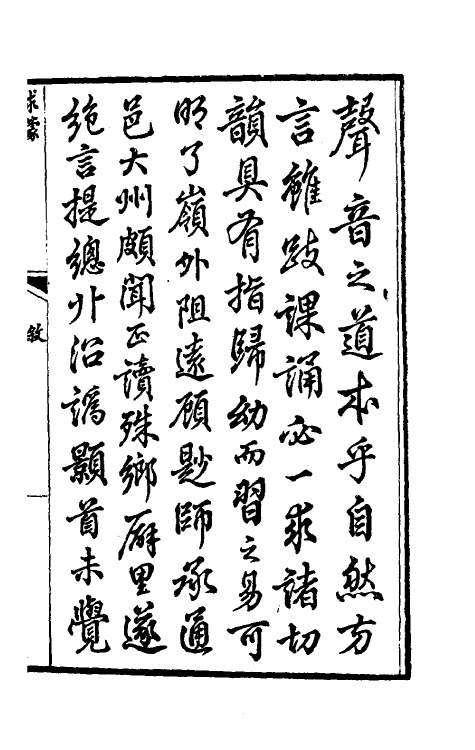 聲音之道本乎自然方
言雖歧課誦必一求諸切
韻具有指歸幼而習之易可
明了嶺外阻遠頋尟師承通
邑大州頗聞正讀殊鄉僻里遂
絶言提總丱沿譌顥首未覺
求蒙
敘